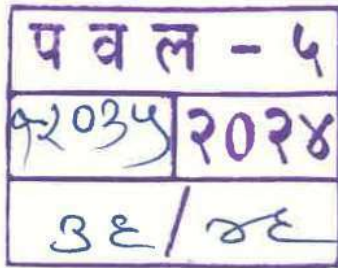 प व ल - ५
१२०३५ २०२४
३६/४६